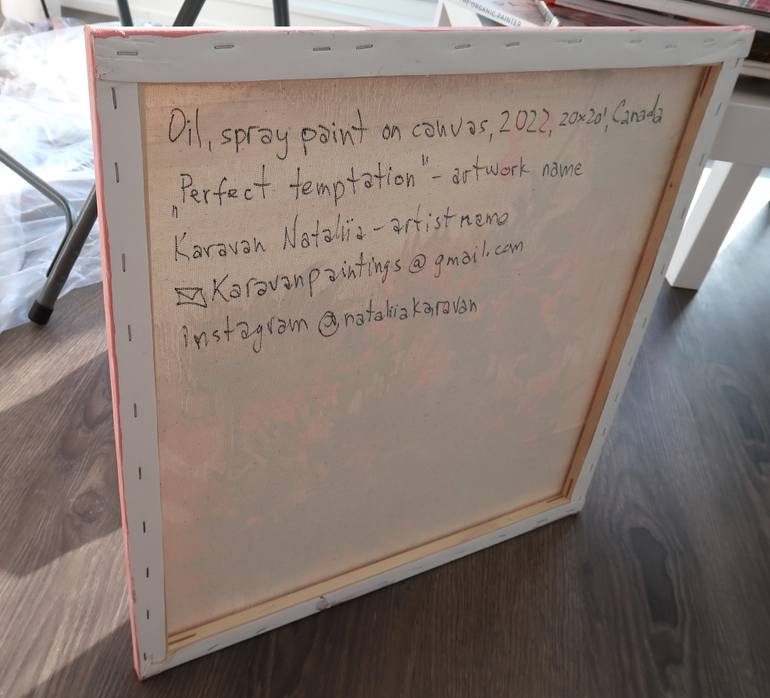 THE ORGANIC PAINTER
Oil, spray paint on canvas, 2022, 20x20', Canada
„Perfect temptation" - artwork name
Karavan Nataliia - artist name
Karavanpaintings@gmail.com
instagram @nataliiakaravan